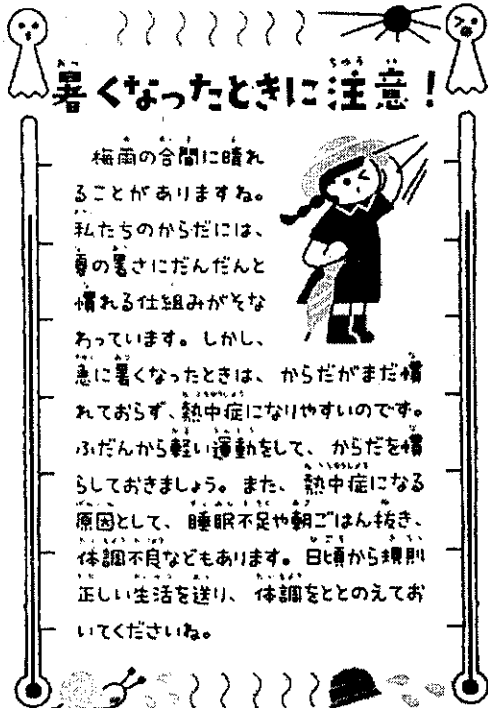 暑くなったときに注意！
梅雨の合間に晴れ
ることがありますね。
私たちのからだには、
夏の暑さにだんだんと
慣れる仕組みがそな
わっています。しかし、
急に暑くなったときは、からだがまだ慣
れておらず、熱中症になりやすいのです。
ふだんから軽い運動をして、からだを慣
らしておきましょう。また、熱中症になる
原因として、睡眠不足や朝ごはん抜き、
体調不良などもあります。日頃から規則
正しい生活を送り、体調をととのえてお
いてくださいね。